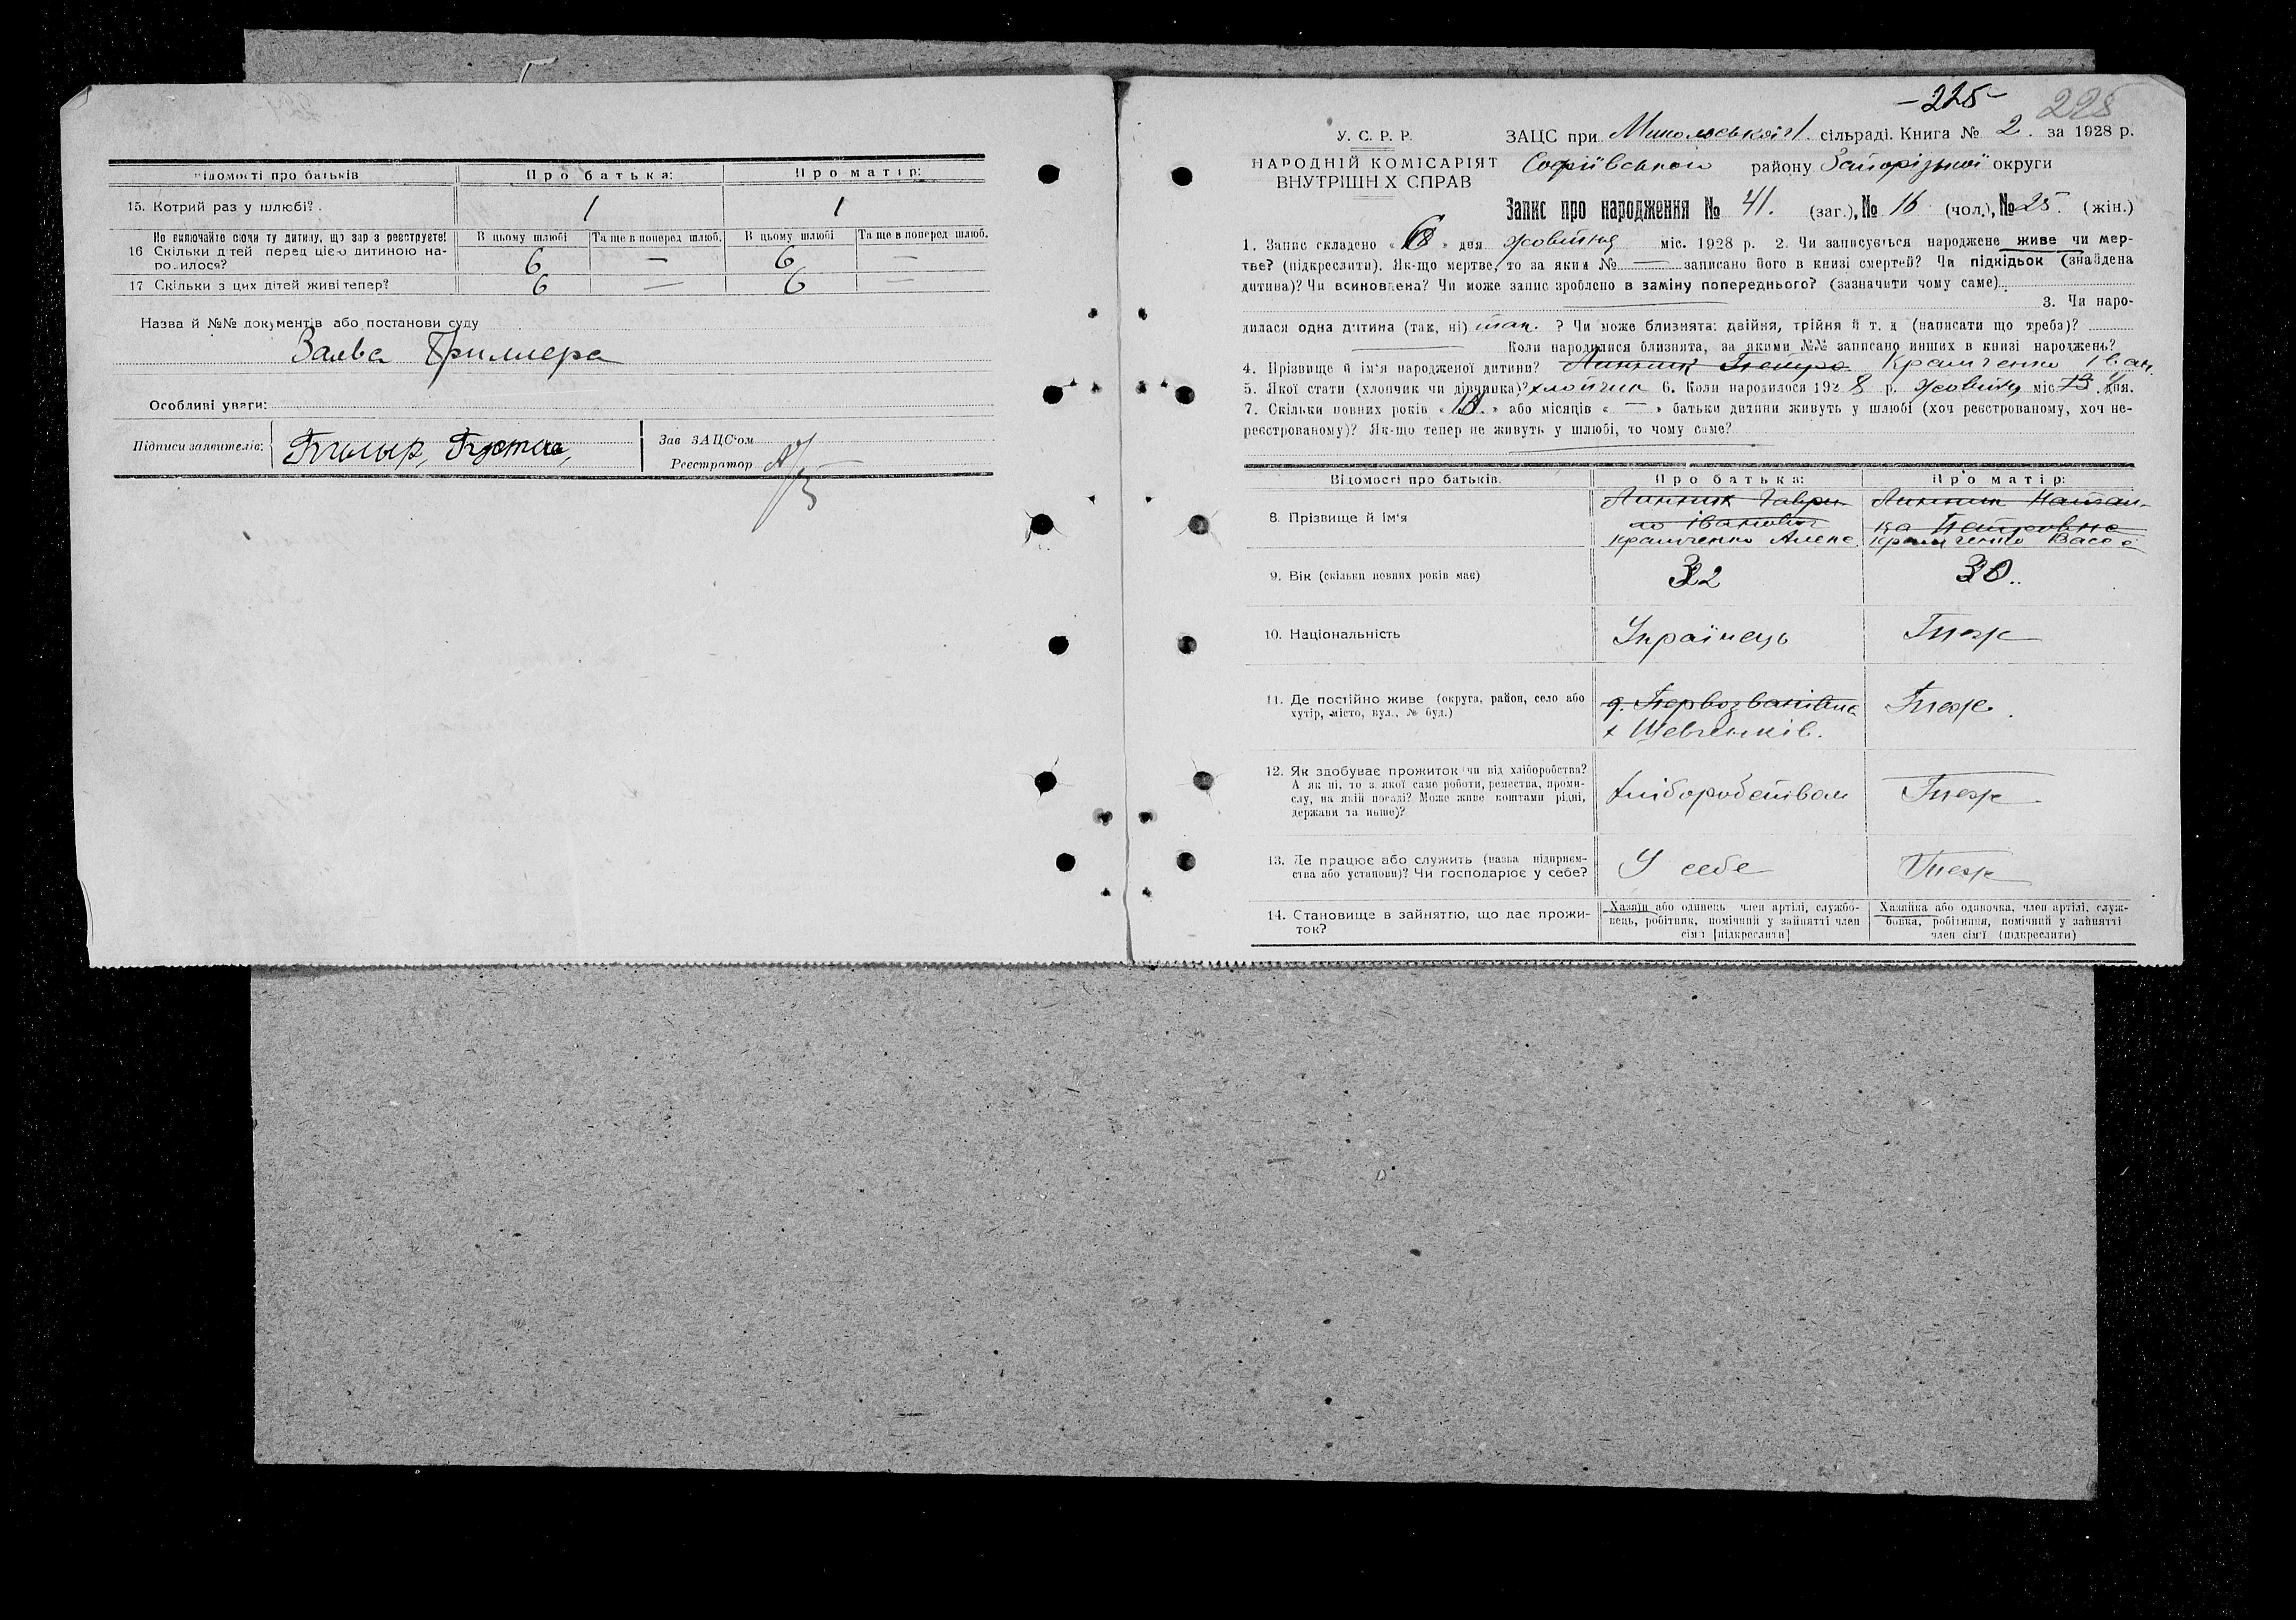 Відомості про батьків
Про батька:
Про матір:
15. Котрий раз у шлюбі?
1
1
Не включайте сюди ту дитину, що зараз реєструєте!
В цьому шлюбі
Та ще в поперед шлюб.
В цьому шлюбі
Та ще в поперед шлюб.
16 Скільки дітей перед цією дитиною на-
родилося?
6 —
6 —
17 Скільки з цих дітей живі тепер?
6 —
6 —
Назва й №№ документів або постанови суду
Заява
Особливі уваги:
Підписи заявителів:
Зав ЗАЦС'ом
Реєстратор
-225-
225
У. С. Р. Р.
НАРОДНІЙ КОМІСАРІЯТ
ВНУТРІШНІХ СПРАВ
ЗАЦС при сільраді. Книга № 2. за 1928 р.
Софіївського району Запорізької округи
Запис про народження № 41. (заг.), № 16 (чол.), № 25. (жін.)
1. Запис складено « » дня жовтня міс. 1928 р. 2. Чи записується народжене живе чи мер-
тве? (підкреслити). Як-що мертве, то за яким № — записано його в книзі смертей? Чи підкідьок (знайдена
дитина)? Чи всиновлена? Чи може запис зроблено в заміну попереднього? (зазначити чому саме)
3. Чи наро-
дилася одна дитина (так, ні) так. ? Чи може близнята: двійня, трійня й т. д (написати що треба)?
Коли народилися близнята, за якими №№ записано инших в книзі народжень?
4. Прізвище й ім'я народженої дитини? Линник Петро Крамченко Іван.
5. Якої статі (хлопчик чи дівчинка)? хлопчик 6. Коли народилося 1928 р. жовтн міс. дня.
7. Скільки повних років « » або місяців « — » батьки дитини живуть у шлюбі (хоч реєстрованому, хоч не-
реєстрованому)? Як-що тепер не живуть у шлюбі, то чому саме?
Відомості про батьків.
Про батька:
Про матір:
8. Прізвище й ім'я
Линник Гаври-
ло Іванович
Крамченко Алекс.
Линник Натал-
ка Петровна
Крамченко Васс
9. Вік (скільки повних років має)
32
30..
10. Національність
Українець
Теж
11. Де постійно живе (округа, район, село або
хутір, місто, вул., № буд.)
х Шевченків.
Теж.
12. Як здобуває прожиток чи від хліборобства?
А як ні, то з якої саме роботи, ремества, проми-
слу, на якій посаді? Може живе коштами рідні,
держави та инше)?
хліборобством
Теж
13. Де працює або служить (назва підприєм-
ства або установи)? Чи господарює у себе?
У себе
Теж
14. Становище в зайняттю, що дає прожи-
ток?
Хазяїн або одинець член артілі, службо-
вець, робітник, помічний у зайнятті член
сім'ї [підкреслити]
Хазяйка або одиночка, член артілі, служ-
бовка, робітниця, помічний у зайнятті
член сім'ї (підкреслити)